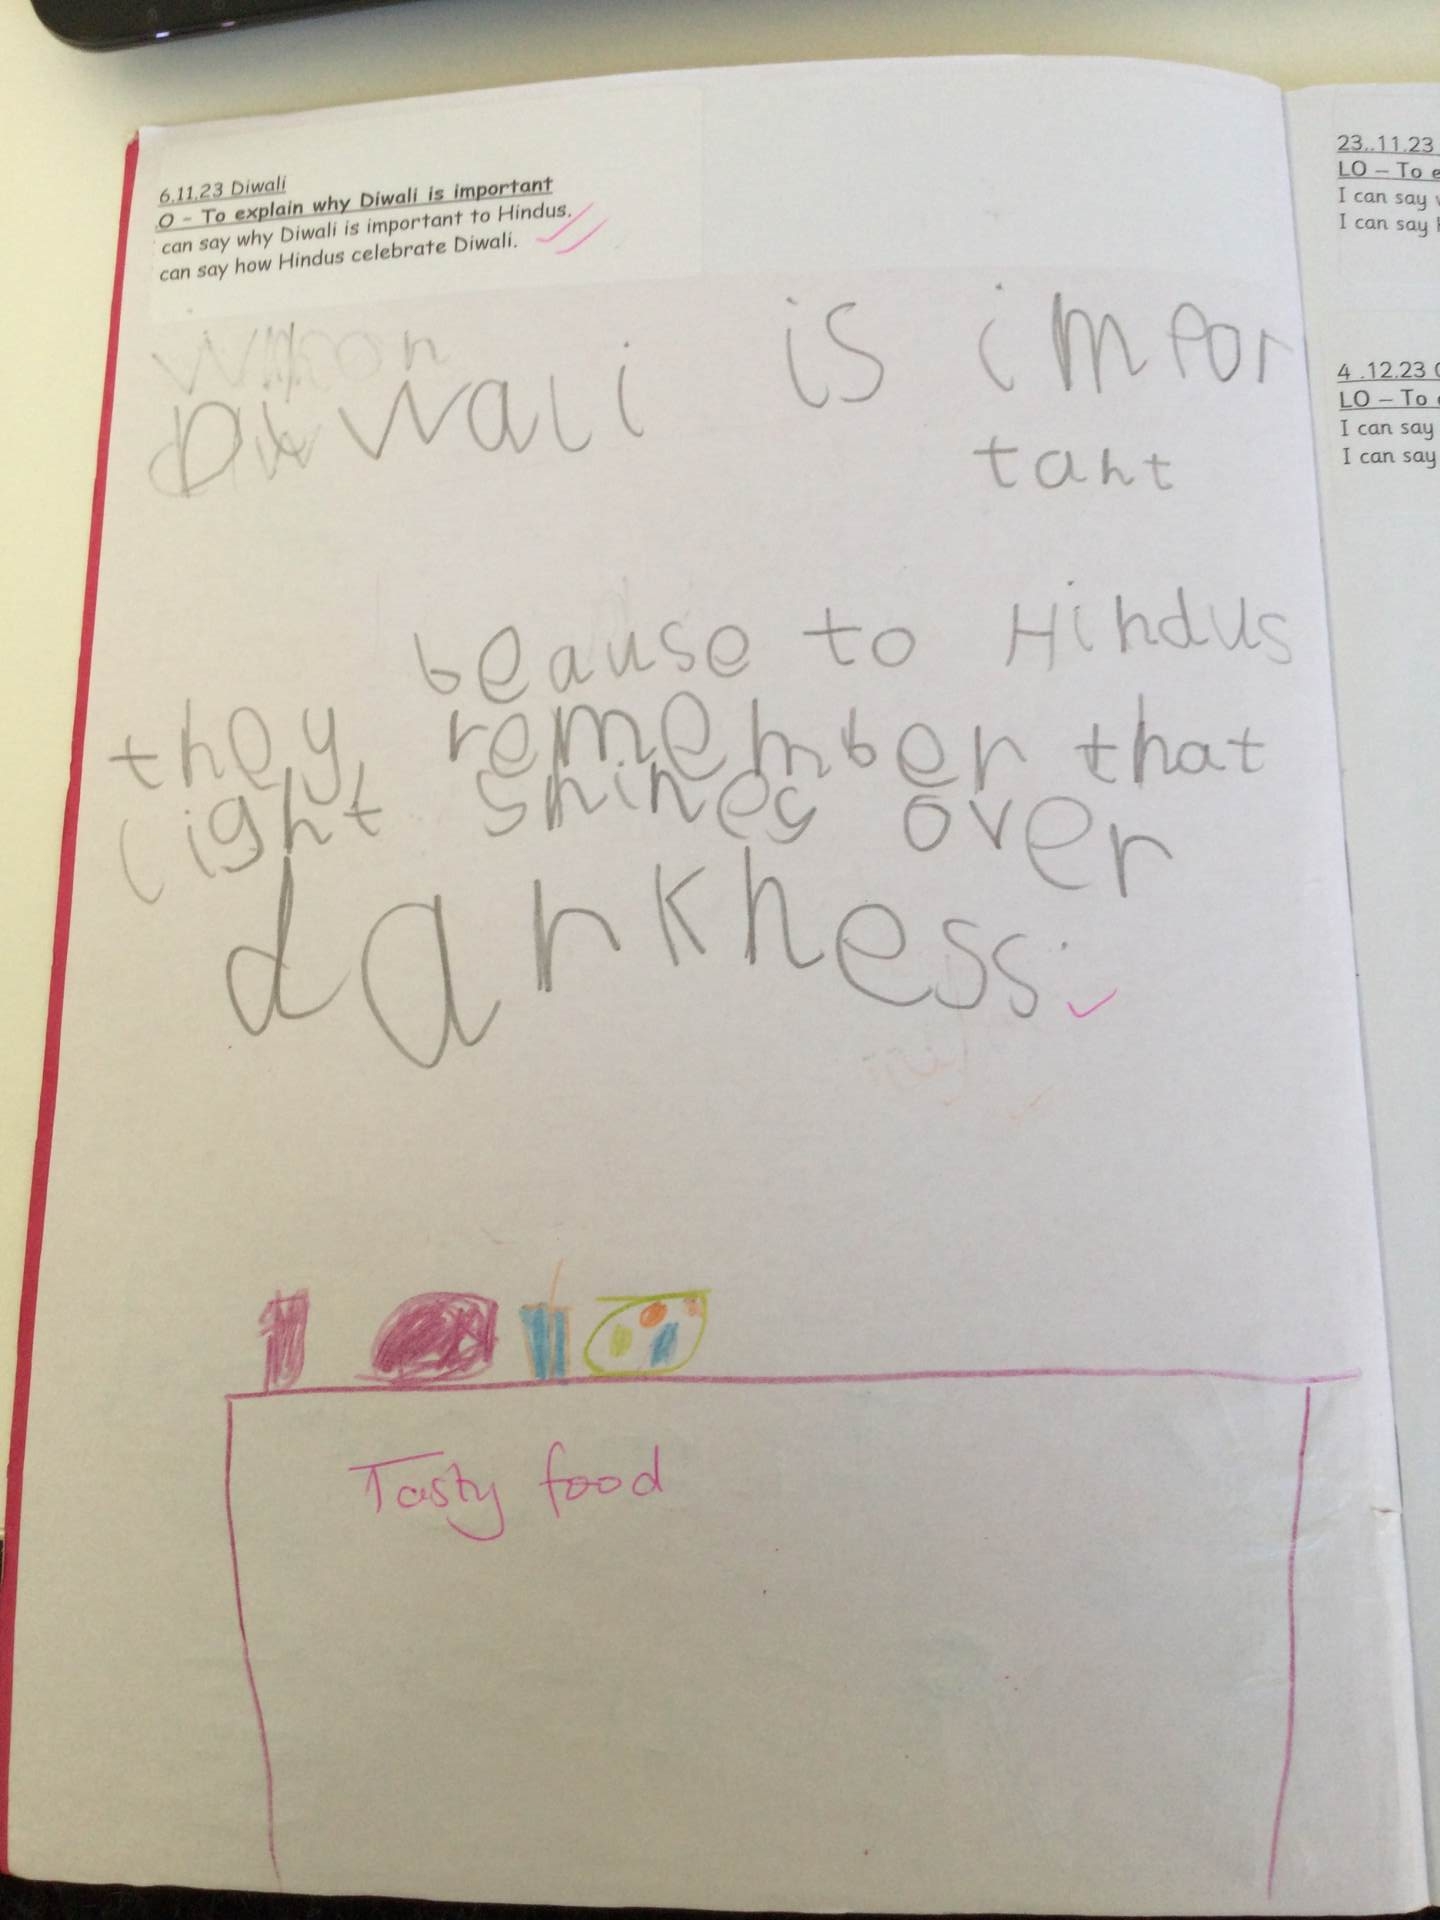 6.11.23 Diwali
O - To explain why Diwali is important
can say why Diwali is important to Hindus.
can say how Hindus celebrate Diwali.
Diwali is impor
tant
beause to Hindus
they remember that
light shines over
darkness.
Tasty food
23..11.23
LO – To e
I can say
I can say
4 .12.23
LO – To
I can say
I can say